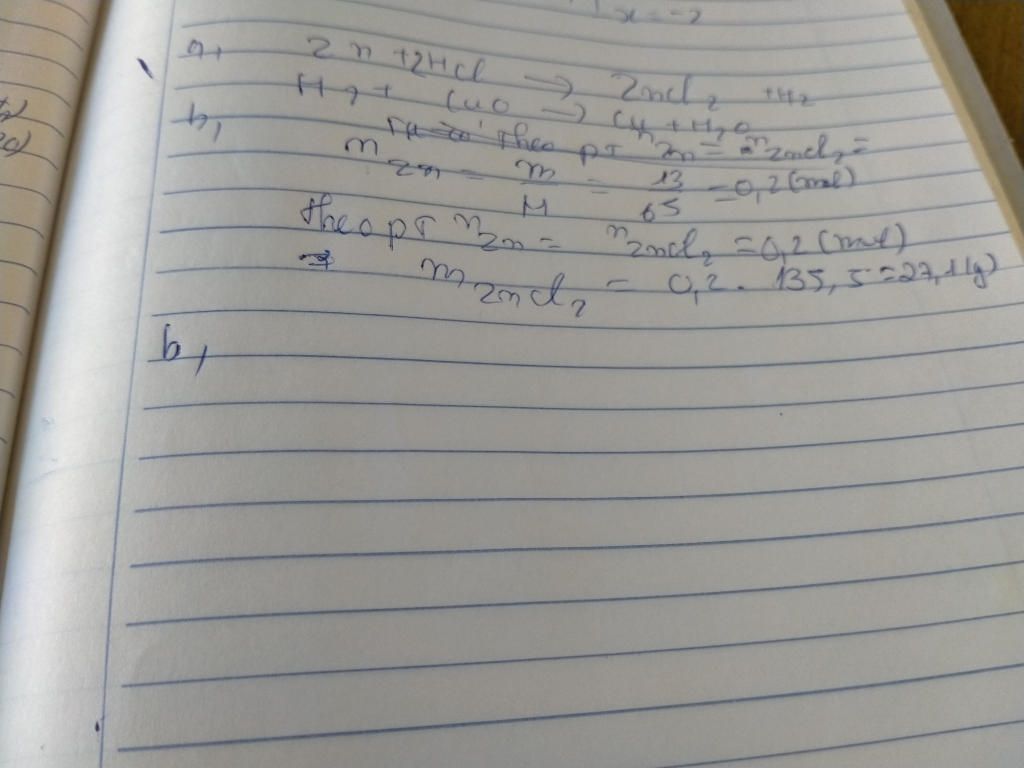 x = -2
a, Zn + 2HCl → ZnCl2 + H2
H2 + CuO → Cu + H2O
b, Theo pt nZn = nZnCl2 =
nZn = m/M = 13/65 = 0,2 (mol)
theo pt nZn = nZnCl2 = 0,2 (mol)
⇒ mZnCl2 = 0,2 . 135,5 = 27,1 (g)
b,